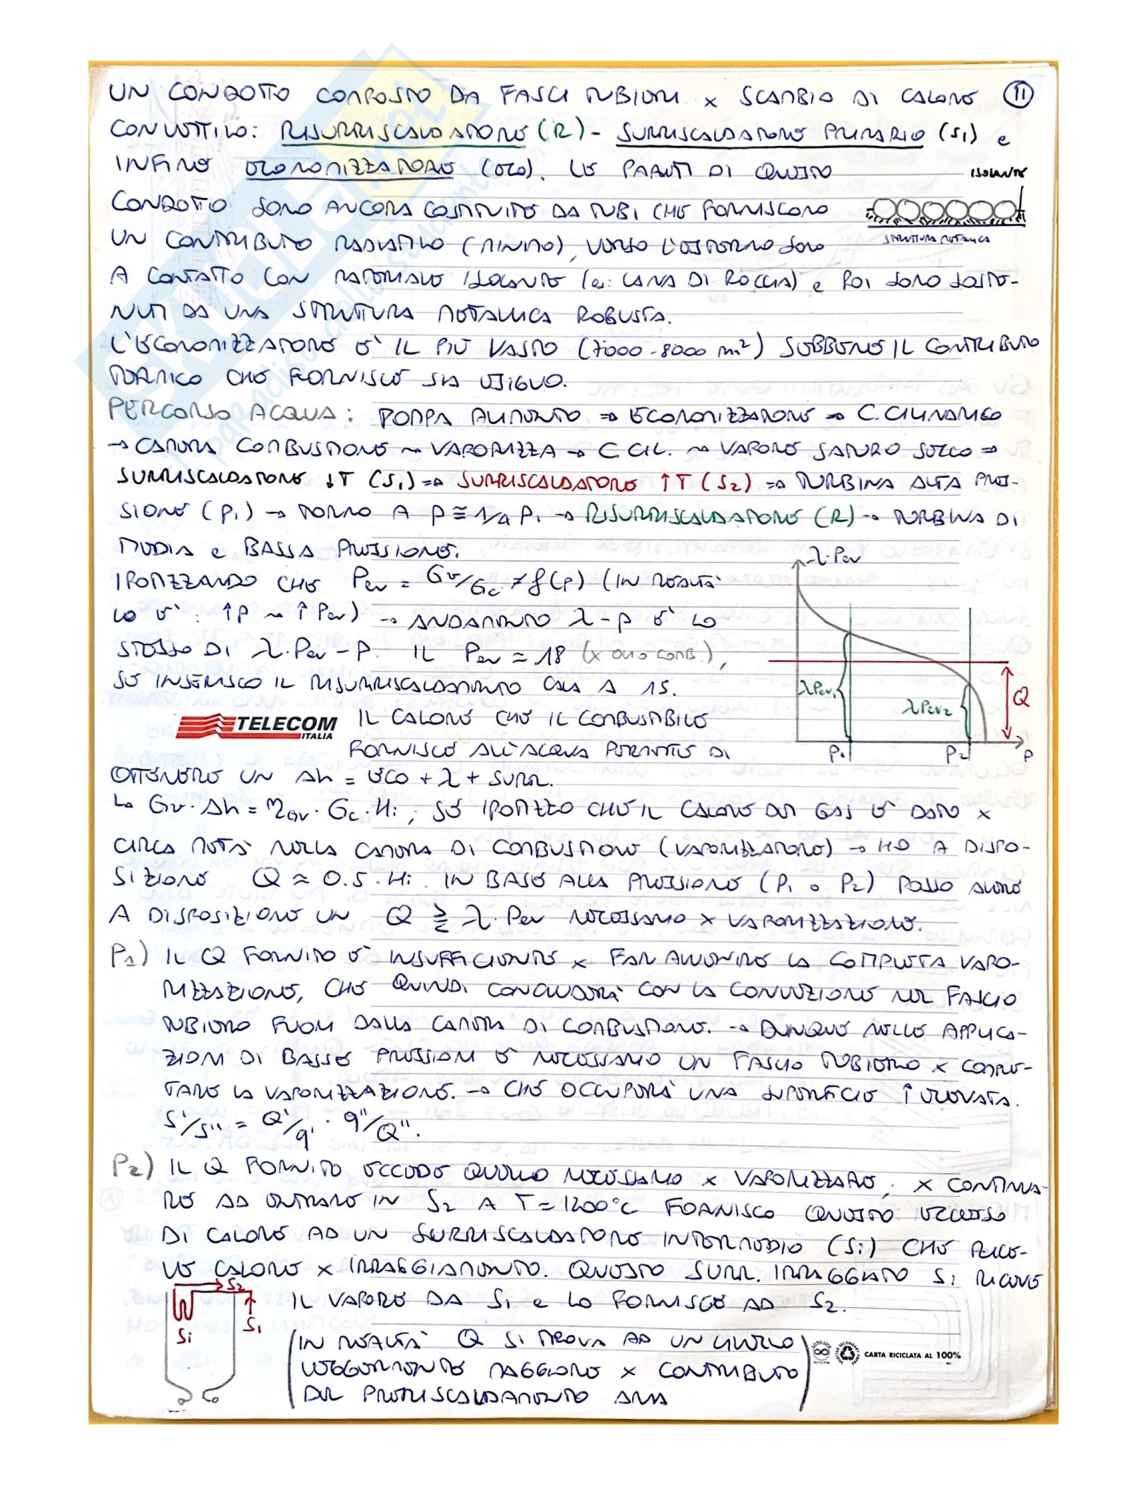 UN CONDOTTO COMPOSTO DA FASCI TUBIERI x SCAMBIO DI CALORE 11
CONVETTIVO: RISURRISCALDATORE (R) - SURRISCALDATORE PRIMARIO (S1) e
INFINE ECONOMIZZATORE (ECO). LE PARETI DI QUESTO
ISOLANTE
CONDOTTO SONO ANCORA COSTITUITE DA TUBI CHE FORNISCONO
UN CONTRIBUTO RADIATIVO (MINIMO), VERSO L'ESTERNO SONO
STRUTTURA METALLICA
A CONTATTO CON MATERIALE ISOLANTE (es: LANA DI ROCCIA) e POI SONO SOSTE-
NUTI DA UNA STRUTTURA METALLICA ROBUSTA.
L'ECONOMIZZATORE E' IL PIÙ VASTO (7000-8000 m²) SEBBENE IL CONTRIBUTO
TERMICO CHE FORNISCE SIA ESIGUO.
PERCORSO ACQUA: POMPA ALIMENTO ⇒ ECONOMIZZATORE ⇒ C. CILINDRICO
→ CAMERA COMBUSTIONE ⇝ VAPORIZZA → C. CIL. ⇝ VAPORE SATURO SECCO ⇒
SURRISCALDATORE ↓T (S1) ⇒ SURRISCALDATORE ↑T (S2) ⇒ TURBINA ALTA PRES-
SIONE (P1) → TORNO A P ≅ 1/4 P1 → RISURRISCALDATORE (R) → TURBINA DI
MEDIA e BASSA PRESSIONE.
λ·Pev
IPOTIZZANDO CHE Pev = Gv/Gc ≠ f(P) (IN REALTÀ
LO E': ↑P ⇝ ↑Pev) → ANDAMENTO λ-P E' LO
STESSO DI λ·Pev-P. IL Pev ≃ 18 (x OLIO COMB.),
SE INSERISCO IL RISURRISCALDAMENTO CALA A 15.
λPev1 λPev2 Q
P1 P2 P
TELECOM
ITALIA
IL CALORE CHE IL COMBUSTIBILE
FORNISCE ALL'ACQUA PERMETTE DI
OTTENERE UN Δh = ECO + λ + SURR.
↳ Gv·Δh = ηGV·Gc·Hi ; SE IPOTIZZO CHE IL CALORE DEI GAS E' DATO x
CIRCA METÀ NELLA CAMERA DI COMBUSTIONE (VAPORIZZATORE) → HO A DISPO-
SIZIONE Q ≈ 0.5·Hi. IN BASE ALLA PRESSIONE (P1 o P2) POSSO AVERE
A DISPOSIZIONE UN Q ≷ λ·Pev NECESSARIO x VAPORIZZAZIONE.
P1) IL Q FORNITO E' INSUFFICIENTE x FAR AVVENIRE LA COMPLETA VAPO-
RIZZAZIONE, CHE QUINDI CONCLUDERÀ CON LA CONVEZIONE NEL FASCIO
TUBIERO FUORI DALLA CAMERA DI COMBUSTIONE. → DUNQUE NELLE APPLICA-
ZIONI DI BASSE PRESSIONI E' NECESSARIO UN FASCIO TUBIERO x COMPLE-
TARE LA VAPORIZZAZIONE. → CHE OCCUPERÀ UNA SUPERFICIE ↑ ELEVATA.
S'/S'' = Q'/q' · q''/Q''.
P2) IL Q FORNITO ECCEDE QUELLO NECESSARIO x VAPORIZZARE; x CONTINUA-
RE AD ENTRARE IN S2 A T=1200°C FORNISCO QUESTO ECCESSO
DI CALORE AD UN SURRISCALDATORE INTERMEDIO (Si) CHE RICE-
VE CALORE x IRRAGGIAMENTO. QUESTO SURR. IRRAGGIATO Si RICEVE
IL VAPORE DA S1 e LO FORNISCE AD S2.
S2
Si S1
(IN REALTÀ Q SI TROVA AD UN LIVELLO
LEGGERMENTE MAGGIORE x CONTRIBUTO
DEL PRERISCALDAMENTO ARIA)
CARTA RICICLATA AL 100%